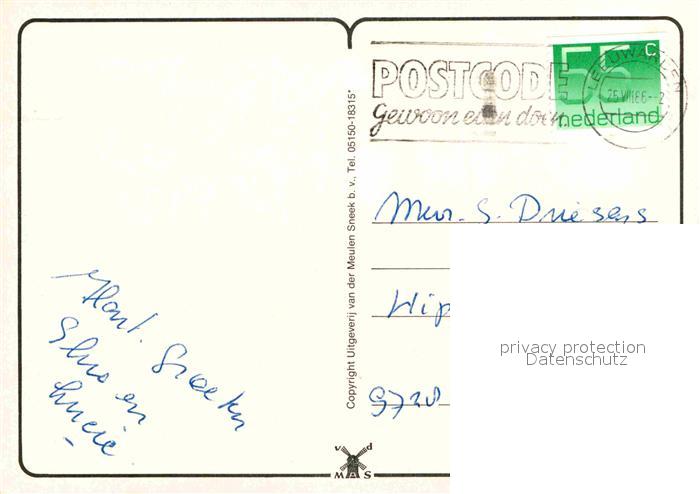 POSTCODE
Gewoon even doen.
55 c
nederland
LEEUWARDEN
25.VII.86-2
Copyright Uitgeverij van der Meulen Sneek b.v., Tel. 05150-18315*
Mevr. S. Driesens
Wip
9728
privacy protection
Datenschutz
Hart. Groeten
en
Lucie
v d
MAS